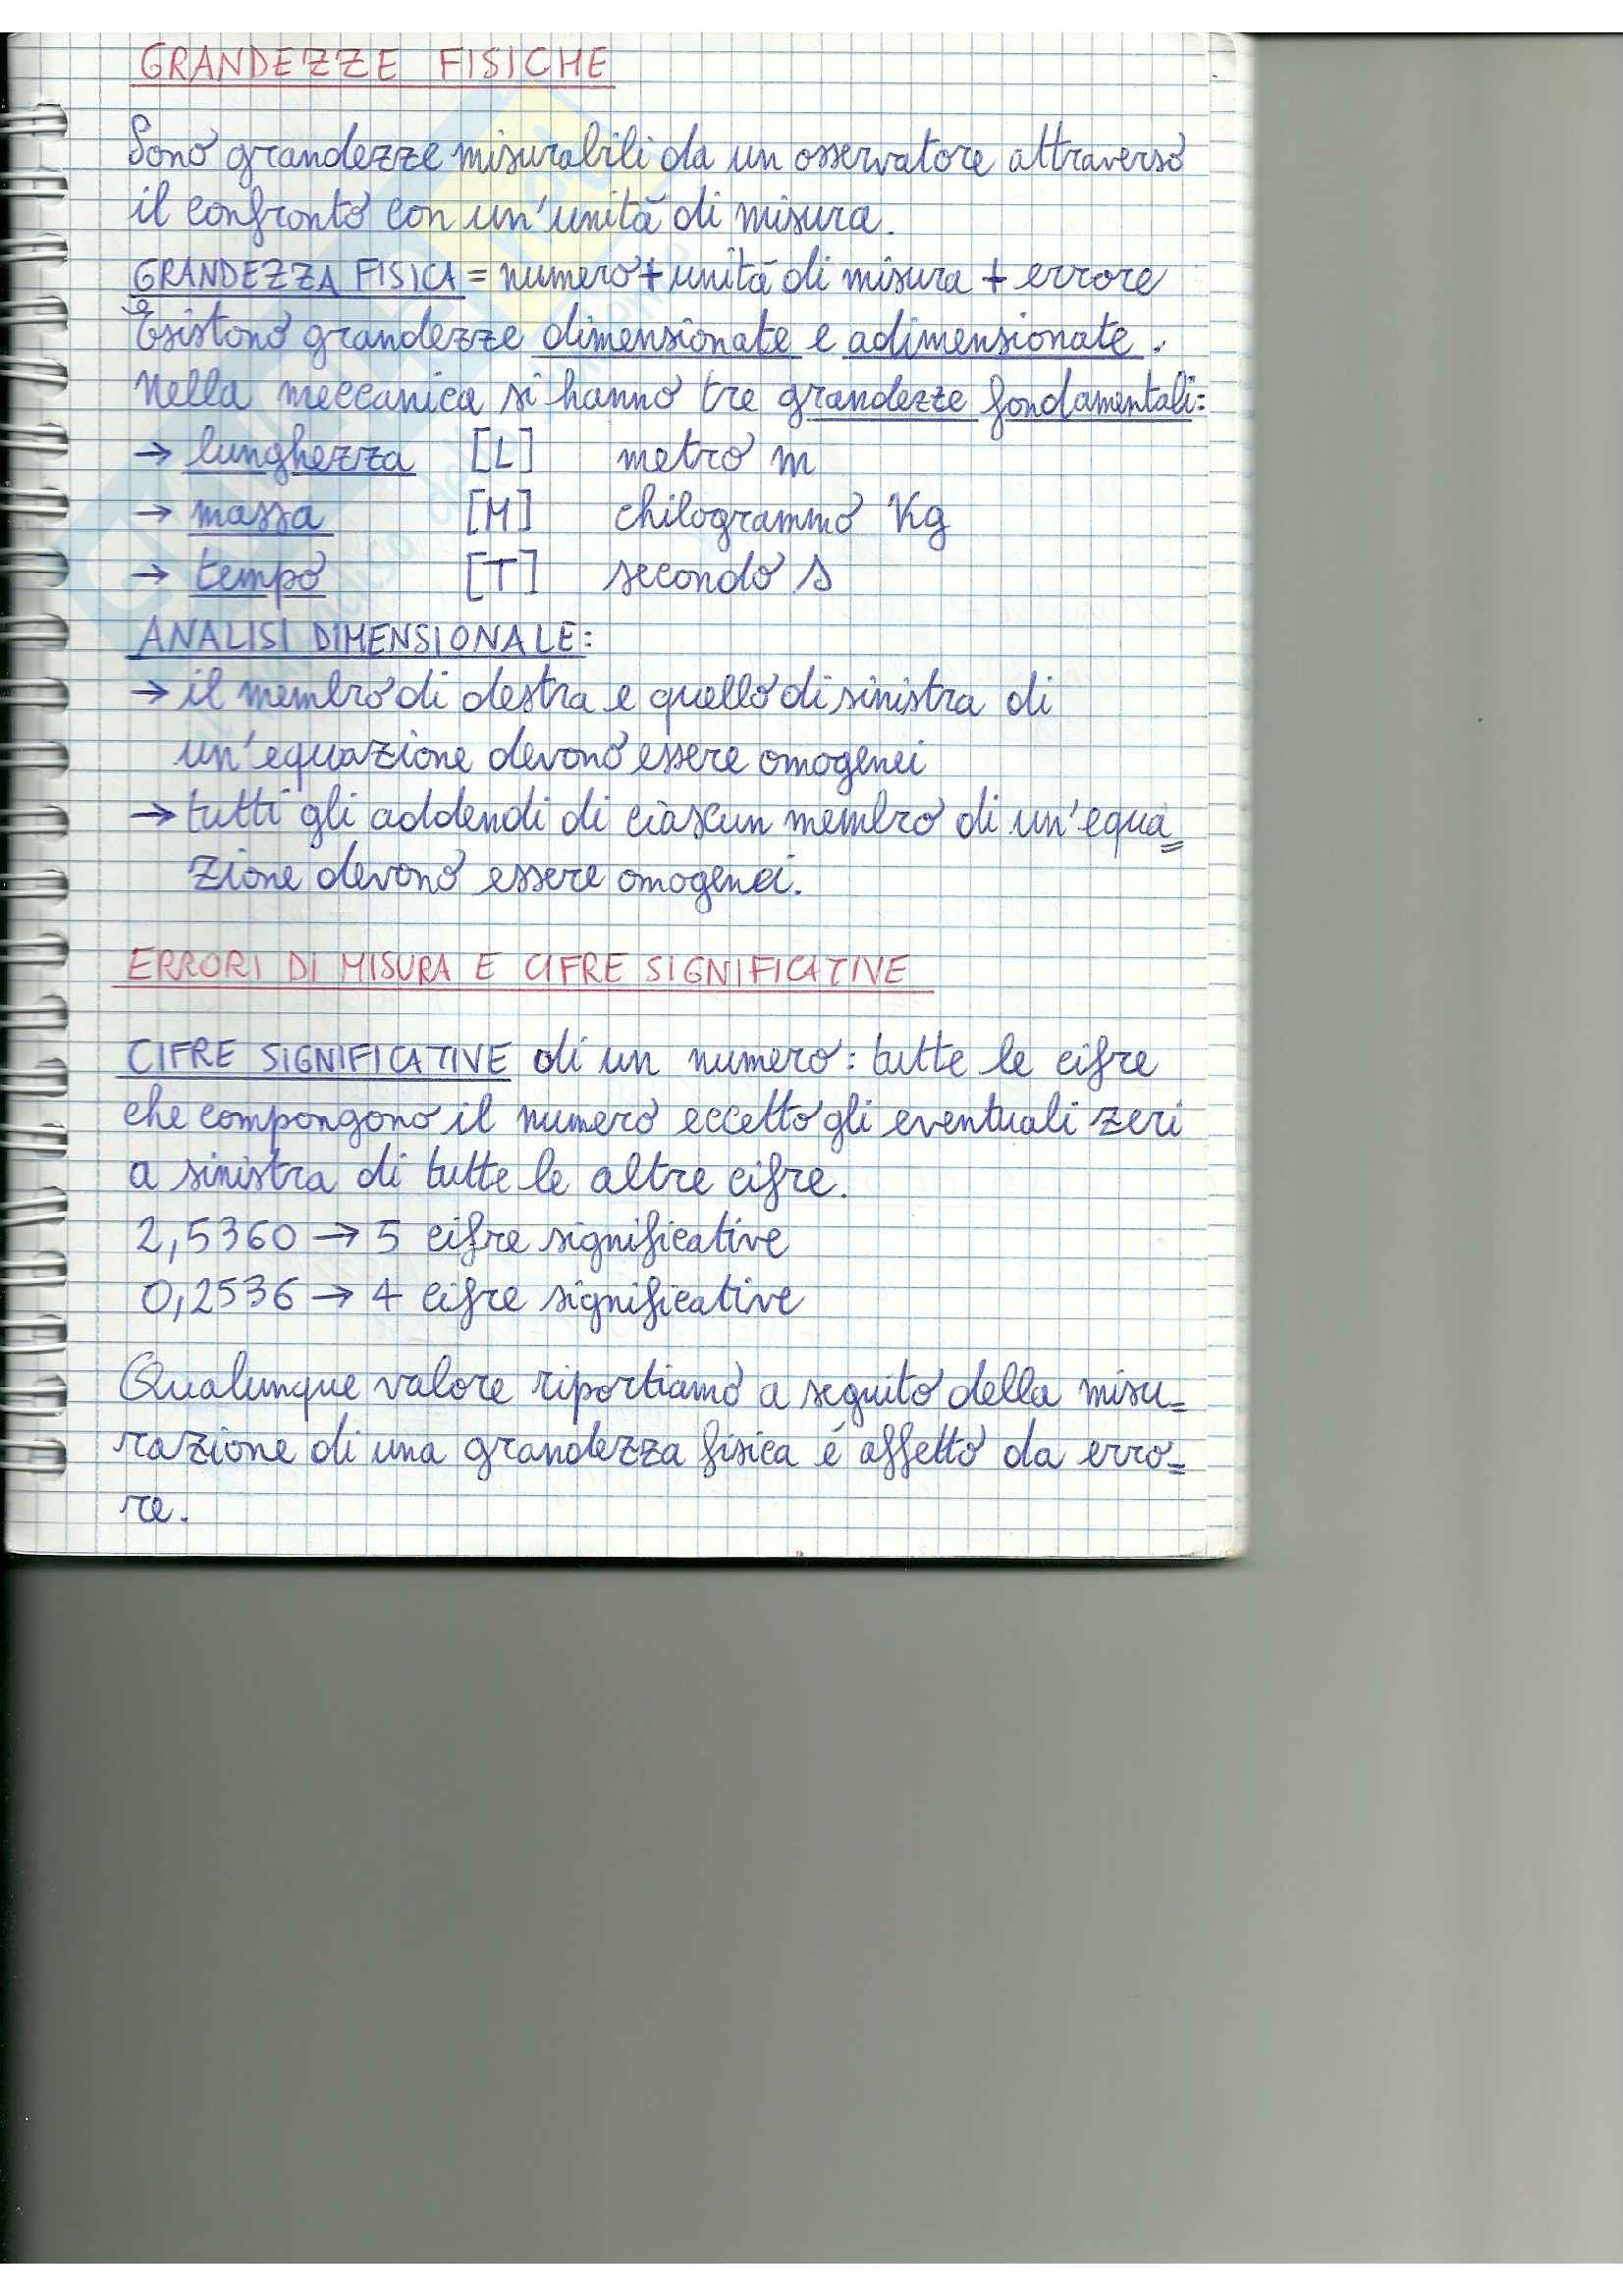 GRANDEZZE FISICHE
Sono grandezze misurabili da un osservatore attraverso
il confronto con un'unità di misura.
GRANDEZZA FISICA = numero + unità di misura + errore
Esistono grandezze dimensionate e adimensionate.
Nella meccanica si hanno tre grandezze fondamentali:
→ lunghezza [L] metro m
→ massa [M] chilogrammo Kg
→ tempo [T] secondo s
ANALISI DIMENSIONALE:
→ il membro di destra e quello di sinistra di
un'equazione devono essere omogenei
→ tutti gli addendi di ciascun membro di un'equa=
zione devono essere omogenei.
ERRORI DI MISURA E CIFRE SIGNIFICATIVE
CIFRE SIGNIFICATIVE di un numero: tutte le cifre
che compongono il numero eccetto gli eventuali zeri
a sinistra di tutte le altre cifre.
2,5360 → 5 cifre significative
0,2536 → 4 cifre significative
Qualunque valore riportiamo a seguito della misu=
razione di una grandezza fisica é affetto da erro=
re.